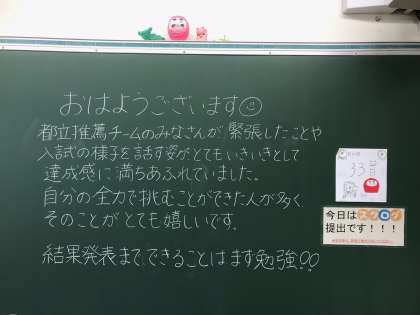 おはようございます
都立推薦チームのみなさんが緊張したことや
入試の様子を話す姿がとてもいきいきとして
達成感に満ちあふれていました。
自分の全力で挑むことができた人が多く、
そのことがとても嬉しいです。
結果発表まで、できることはまず勉強!!
33
今日はスクログ
提出です!!!